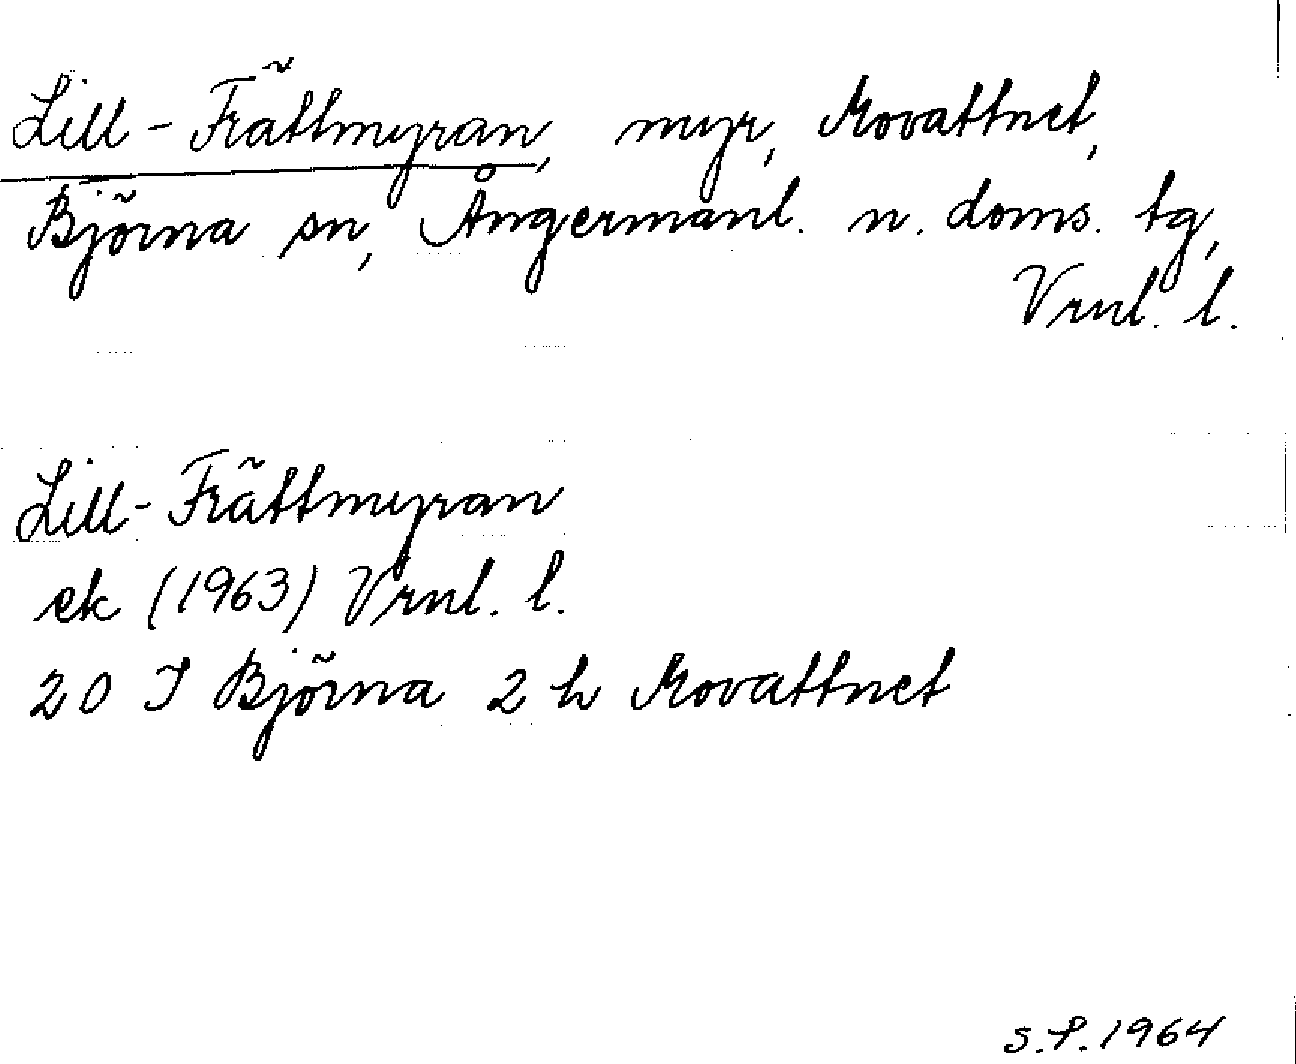 Lill-Frättmyran, myr, Movattnet,
Björna sn, Ångermanl. n. doms. tg,
Vrnl. l.
Lill-Frättmyran
ek (1963) Vrnl. l.
20 I Björna 2 h Movattnet
S.P. 1964